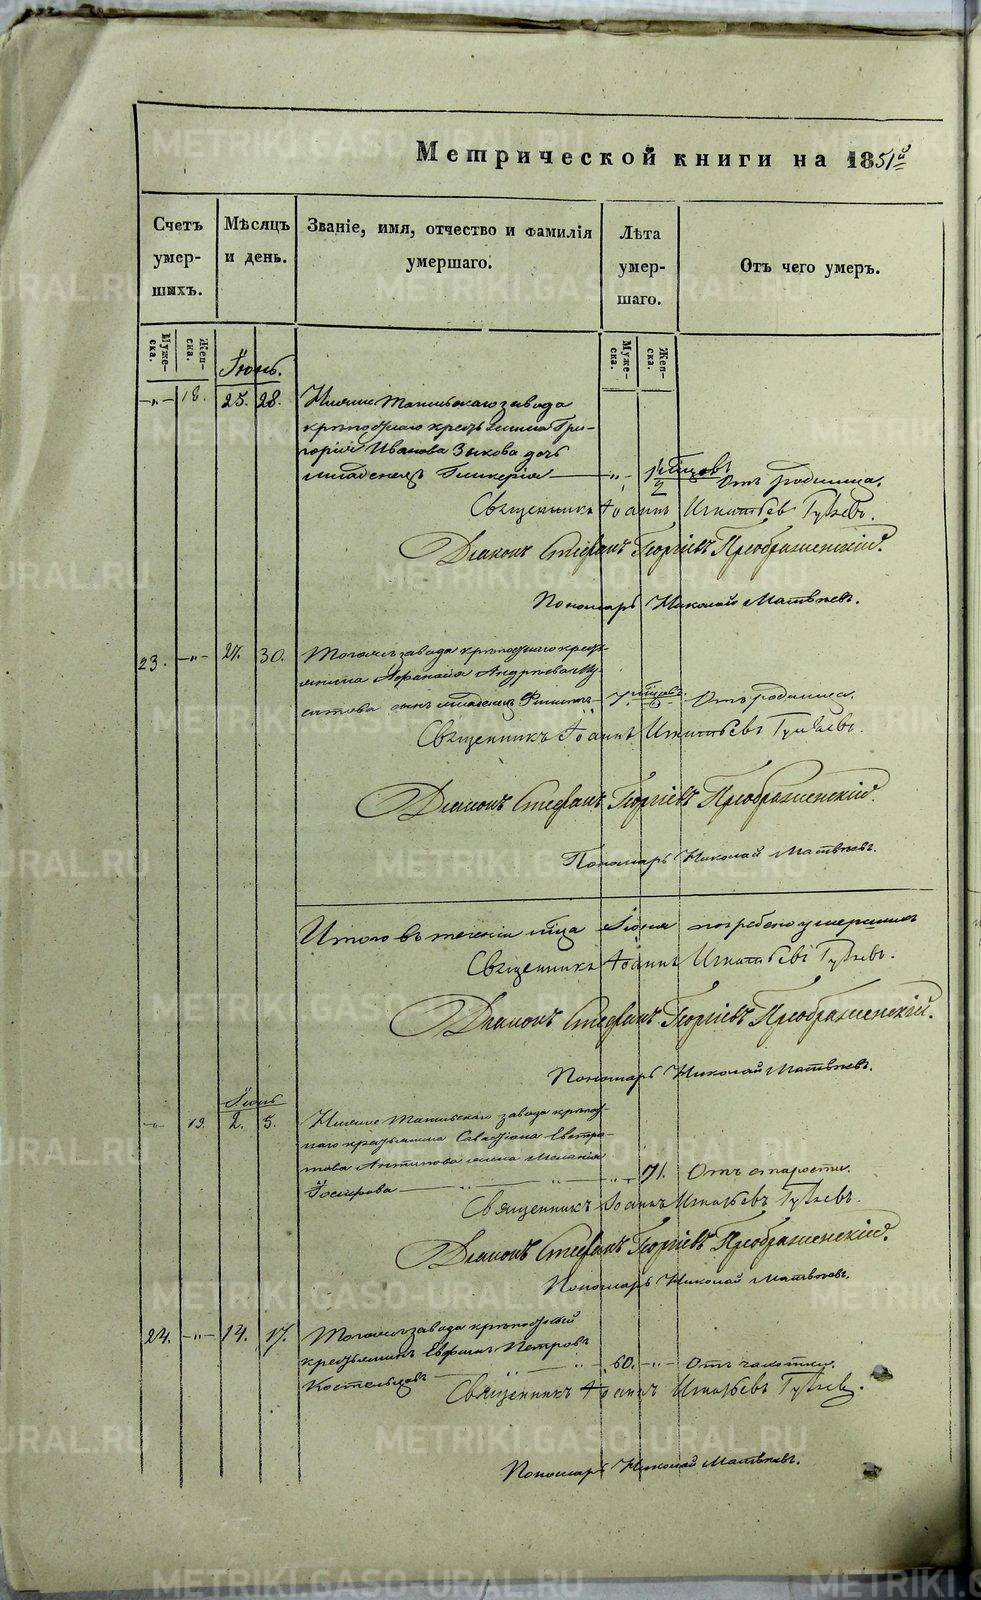 Метрической книги на 1851й
Счетъ умер-шихъ.
Мѣсяцъ и день.
Званіе, имя, отчество и фамилія умершаго.
Лѣта умер-шаго.
Отъ чего умеръ.
Муже-ска.
Жен-ска.
Муже-ска.
Жен-ска.
Іюнь.
-„- 18. 25. 28. Нижне Тагильскаго завода
крѣпостнаго крестьянина Гри-
горія Иванова Зыкова дочь
младенецъ Гликерія -„- 1½ мѣсяцовъ Отъ родимца.
Священникъ Іоаннъ Игнатьевъ
Діаконъ Стефанъ Георгіевъ Преображенскій.
Пономарь Николай Матвѣевъ.
23. -„- 27. 30. Тогожъ завода крѣпостнаго кресть-
янина Афанасія Андреева
сынъ младенецъ 7 мѣсяцовъ. Отъ родимца.
Священникъ Іоаннъ Игнатьевъ
Діаконъ Стефанъ Георгіевъ Преображенскій.
Пономарь Николай Матвѣевъ.
Итого въ теченіи мѣсяца Іюня погребено умершихъ
Священникъ Іоаннъ Игнатьевъ
Діаконъ Стефанъ Георгіевъ Преображенскій.
Пономарь Николай Матвѣевъ.
Іюль
-„- 19. 2. 5. Нижне Тагильскаго завода крѣпост-
наго крестьянина Савастіана Евстра-
това Антипова жена Меланія
Іосифова -„- 71. Отъ старости.
Священникъ Іоаннъ Игнатьевъ
Діаконъ Стефанъ Георгіевъ Преображенскій.
Пономарь Николай Матвѣевъ.
24. -„- 14. 17. Тогожъ завода крѣпостной
крестьянинъ Петровъ
60. -„- Отъ чахотки.
Священникъ Іоаннъ Игнатьевъ
Пономарь Николай Матвѣевъ.
METRIKI.GASO-URAL.RU